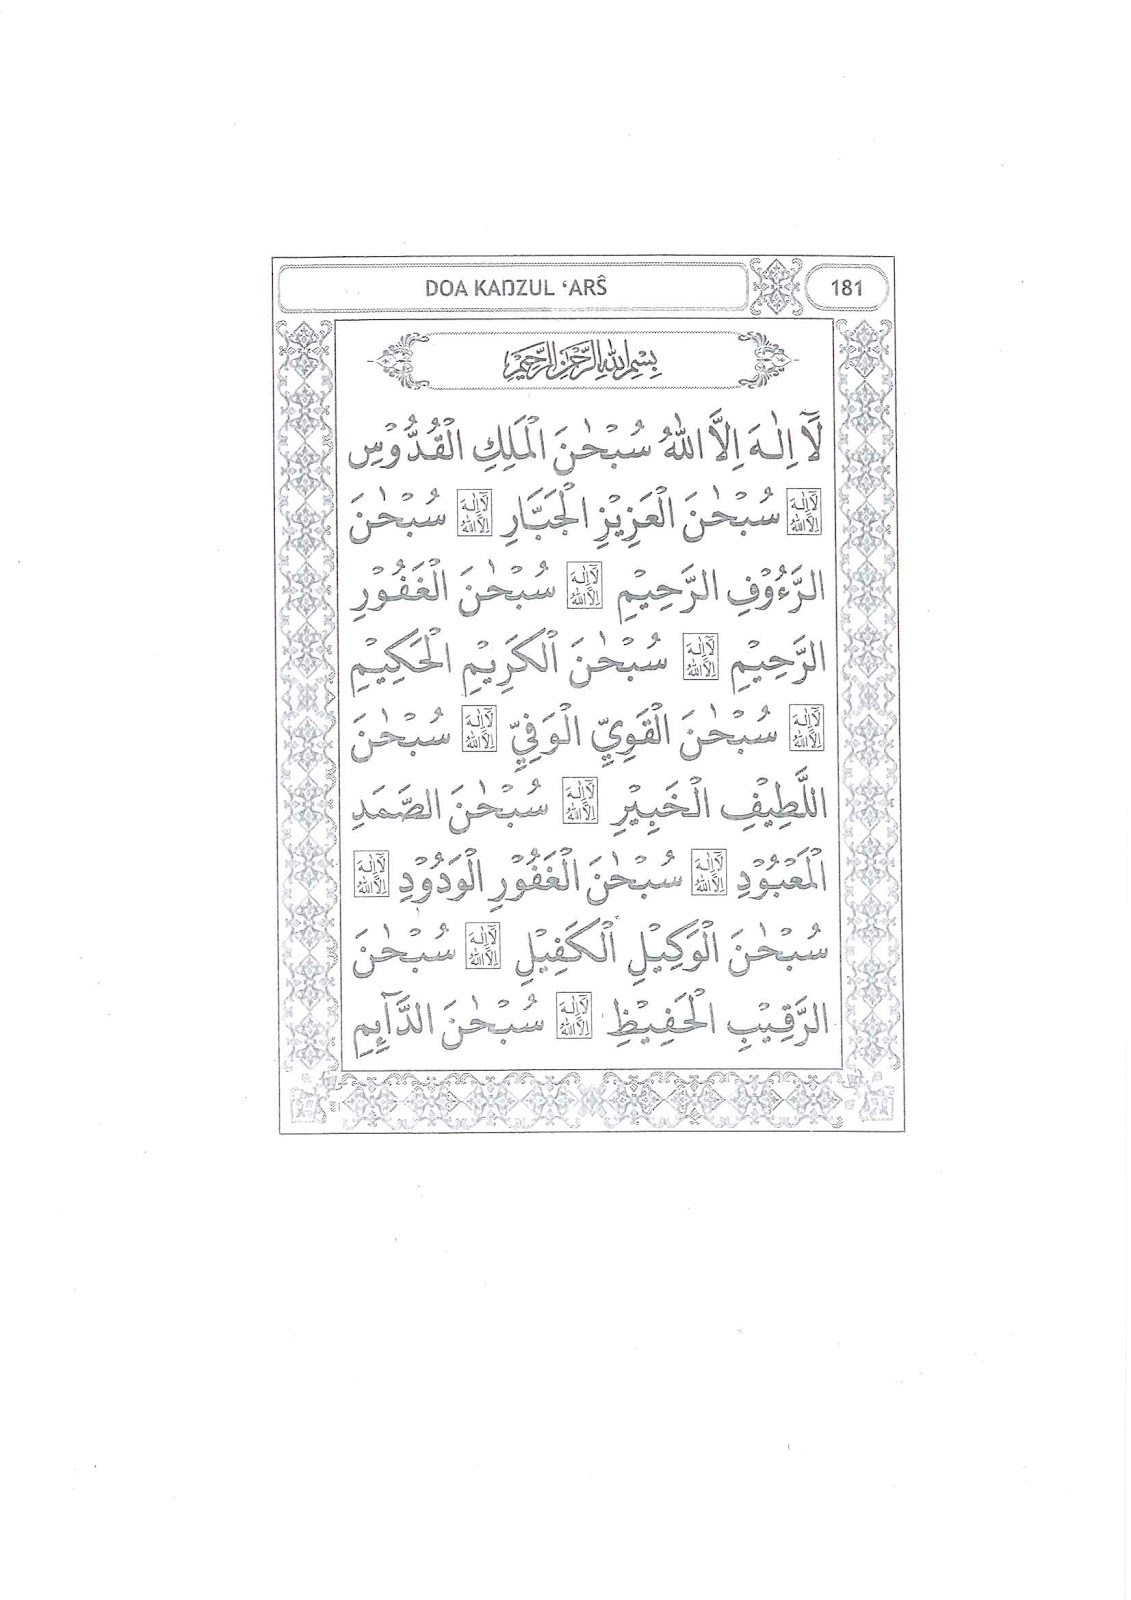 DOA KANZUL ‘ARŜ
181
بِسْمِ اللهِ الرَّحْمٰنِ الرَّحِيْمِ
لَآ اِلٰهَ اِلَّا اللّٰهُ سُبْحٰنَ الْمَلِكِ الْقُدُّوْسِ
لَآ اِلٰهَ اِلَّا اللهُ سُبْحٰنَ الْعَزِيْزِ الْجَبَّارِ لَآ اِلٰهَ اِلَّا اللهُ سُبْحٰنَ
الرَّءُوْفِ الرَّحِيْمِ لَآ اِلٰهَ اِلَّا اللهُ سُبْحٰنَ الْغَفُوْرِ
الرَّحِيْمِ لَآ اِلٰهَ اِلَّا اللهُ سُبْحٰنَ الْكَرِيْمِ الْحَكِيْمِ
لَآ اِلٰهَ اِلَّا اللهُ سُبْحٰنَ الْقَوِيِّ الْوَفِيِّ لَآ اِلٰهَ اِلَّا اللهُ سُبْحٰنَ
اللَّطِيْفِ الْخَبِيْرِ لَآ اِلٰهَ اِلَّا اللهُ سُبْحٰنَ الصَّمَدِ
الْمَعْبُوْدِ لَآ اِلٰهَ اِلَّا اللهُ سُبْحٰنَ الْغَفُوْرِ الْوَدُوْدِ لَآ اِلٰهَ اِلَّا اللهُ
سُبْحٰنَ الْوَكِيْلِ الْكَفِيْلِ لَآ اِلٰهَ اِلَّا اللهُ سُبْحٰنَ
الرَّقِيْبِ الْحَفِيْظِ لَآ اِلٰهَ اِلَّا اللهُ سُبْحٰنَ الدَّآئِمِ